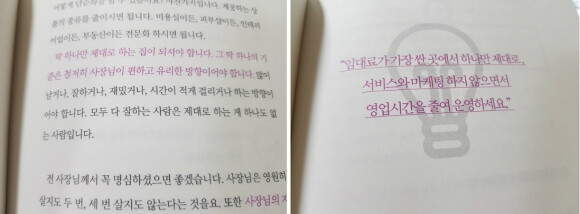 상
품의 종류를 줄이시면 됩니다. 미용실이든, 피부샵이든, 인테리
어업이든, 부동산이든 전문화 하시면 됩니다.
딱 하나만 제대로 하는 집이 되셔야 합니다. 그 딱 하나의 기
준은 철저히 사장님이 편하고 유리한 방향이어야 합니다. 많이
남거나, 잘하거나, 재밌거나, 시간이 적게 걸리거나 하는 방향이
어야 합니다. 모두 다 잘하는 사람은 제대로 하는 게 하나도 없
는 사람입니다.
전 사장님께서 꼭 명심하셨으면 좋겠습니다. 사장님은 영원히
살지도 두 번, 세 번 살지도 않는다는 것을요. 또한 사장님의
"임대료가 가장 싼 곳에서 하나만 제대로,
서비스와 마케팅 하지 않으면서
영업시간을 줄여 운영하세요."